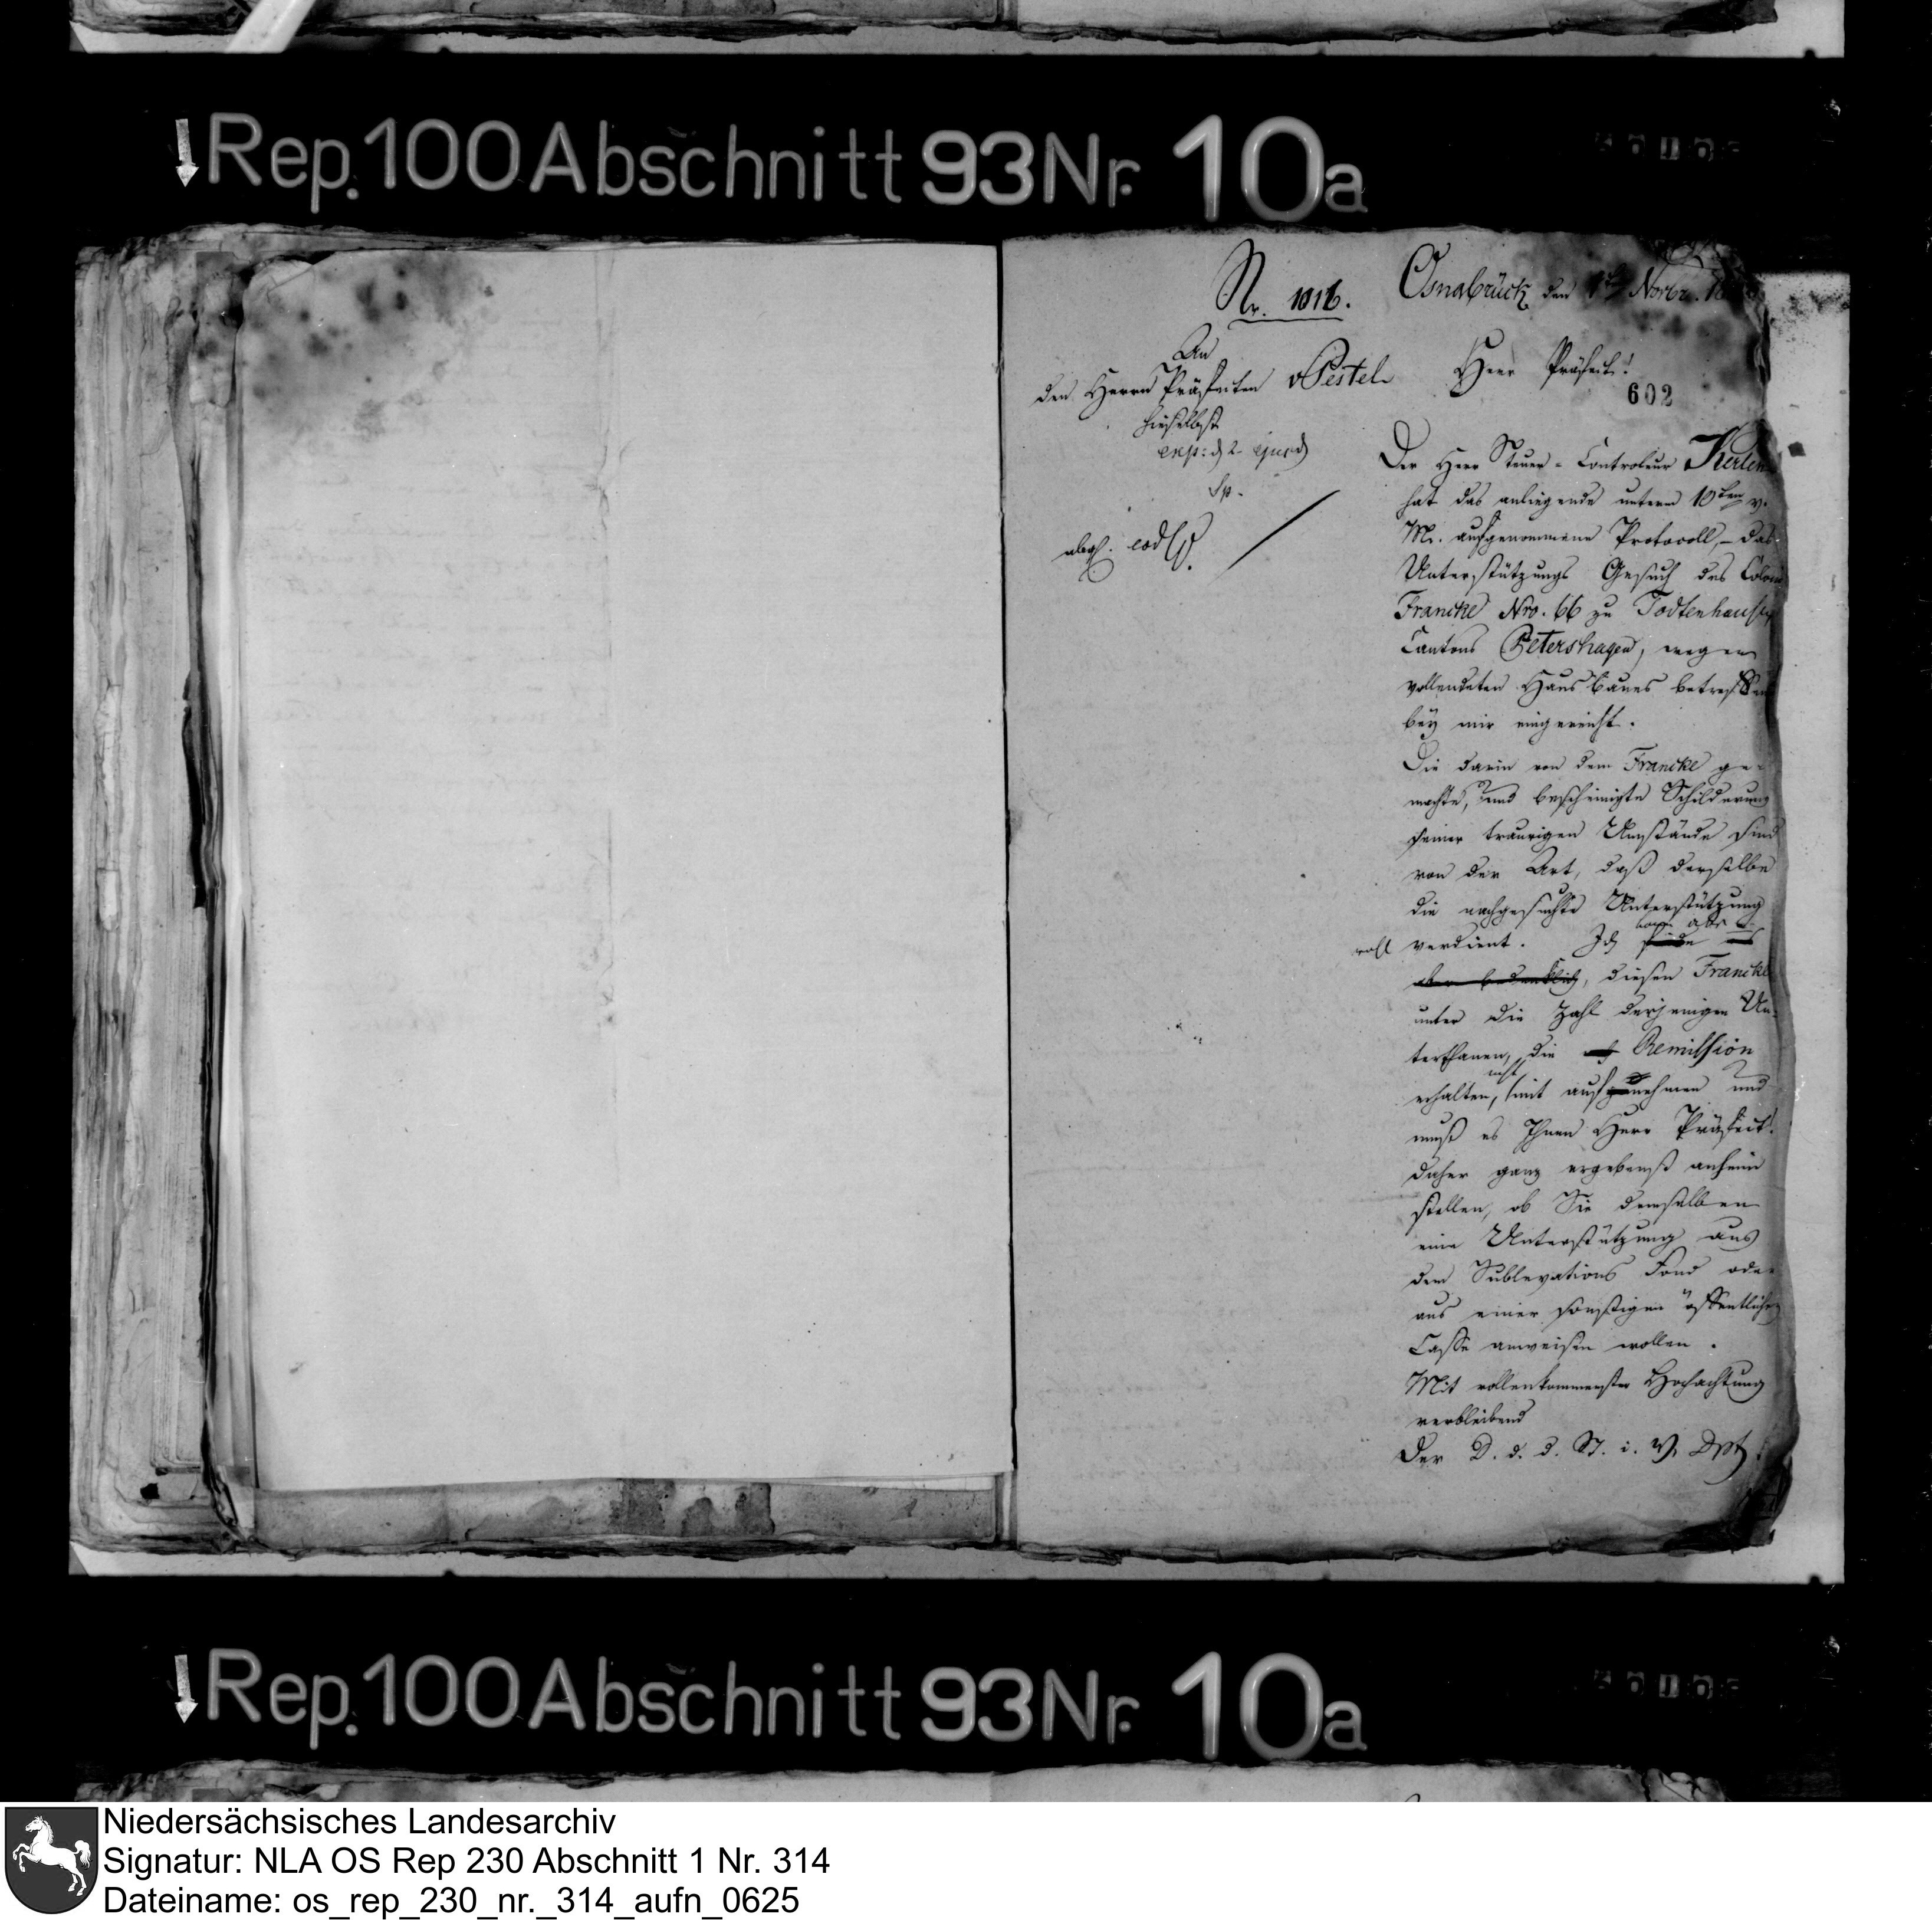 Rep. 100 Abschnitt 93 Nr. 10a
Nr. 1016.
Osnabrück den 1ten Novbr.
An
den Herrn Präfecten vPestel
hieselbst
exp: d 2 ejusd
Sp.
abgs. eod
Herr Präfect!
602
Der Herr Steuer-Controleur
hat das anliegende unterm 10ten v.
M. aufgenommene Protocoll, – das
Unterstützungs Gesuch des Colon
Francke Nro. 66 zu Todtenhausen
Cantons Petershagen, wegen
vollendeten Hausbaues betreffend
bey mir eingereicht.
Die darin von dem Francke ge-
machte, und bescheinigte Schilderung
seiner traurigen Umstände sind
von der Art, daß derselbe
die nachgesuchte Unterstützung
wohl verdient. Ich kann aber
finde es
aber bedenklich, diesen Francke
unter die Zahl derjenigen Un-
terthanen, die Remission
erhalten, nicht mit aufnehmen und
muß es Ihnen Herr Präfect!
daher ganz ergebenst anheim
stellen, ob Sie demselben
eine Unterstützung aus
dem Sublevations Fond oder
aus einer sonstigen öffentlichen
Casse anweisen wollen.
Mit vollenkommenster Hochachtung
verbleibend
Der D. d. d. St. i. W. Dpt.
Rep. 100 Abschnitt 93 Nr. 10a
Niedersächsisches Landesarchiv
Signatur: NLA OS Rep 230 Abschnitt 1 Nr. 314
Dateiname: os_rep_230_nr._314_aufn_0625